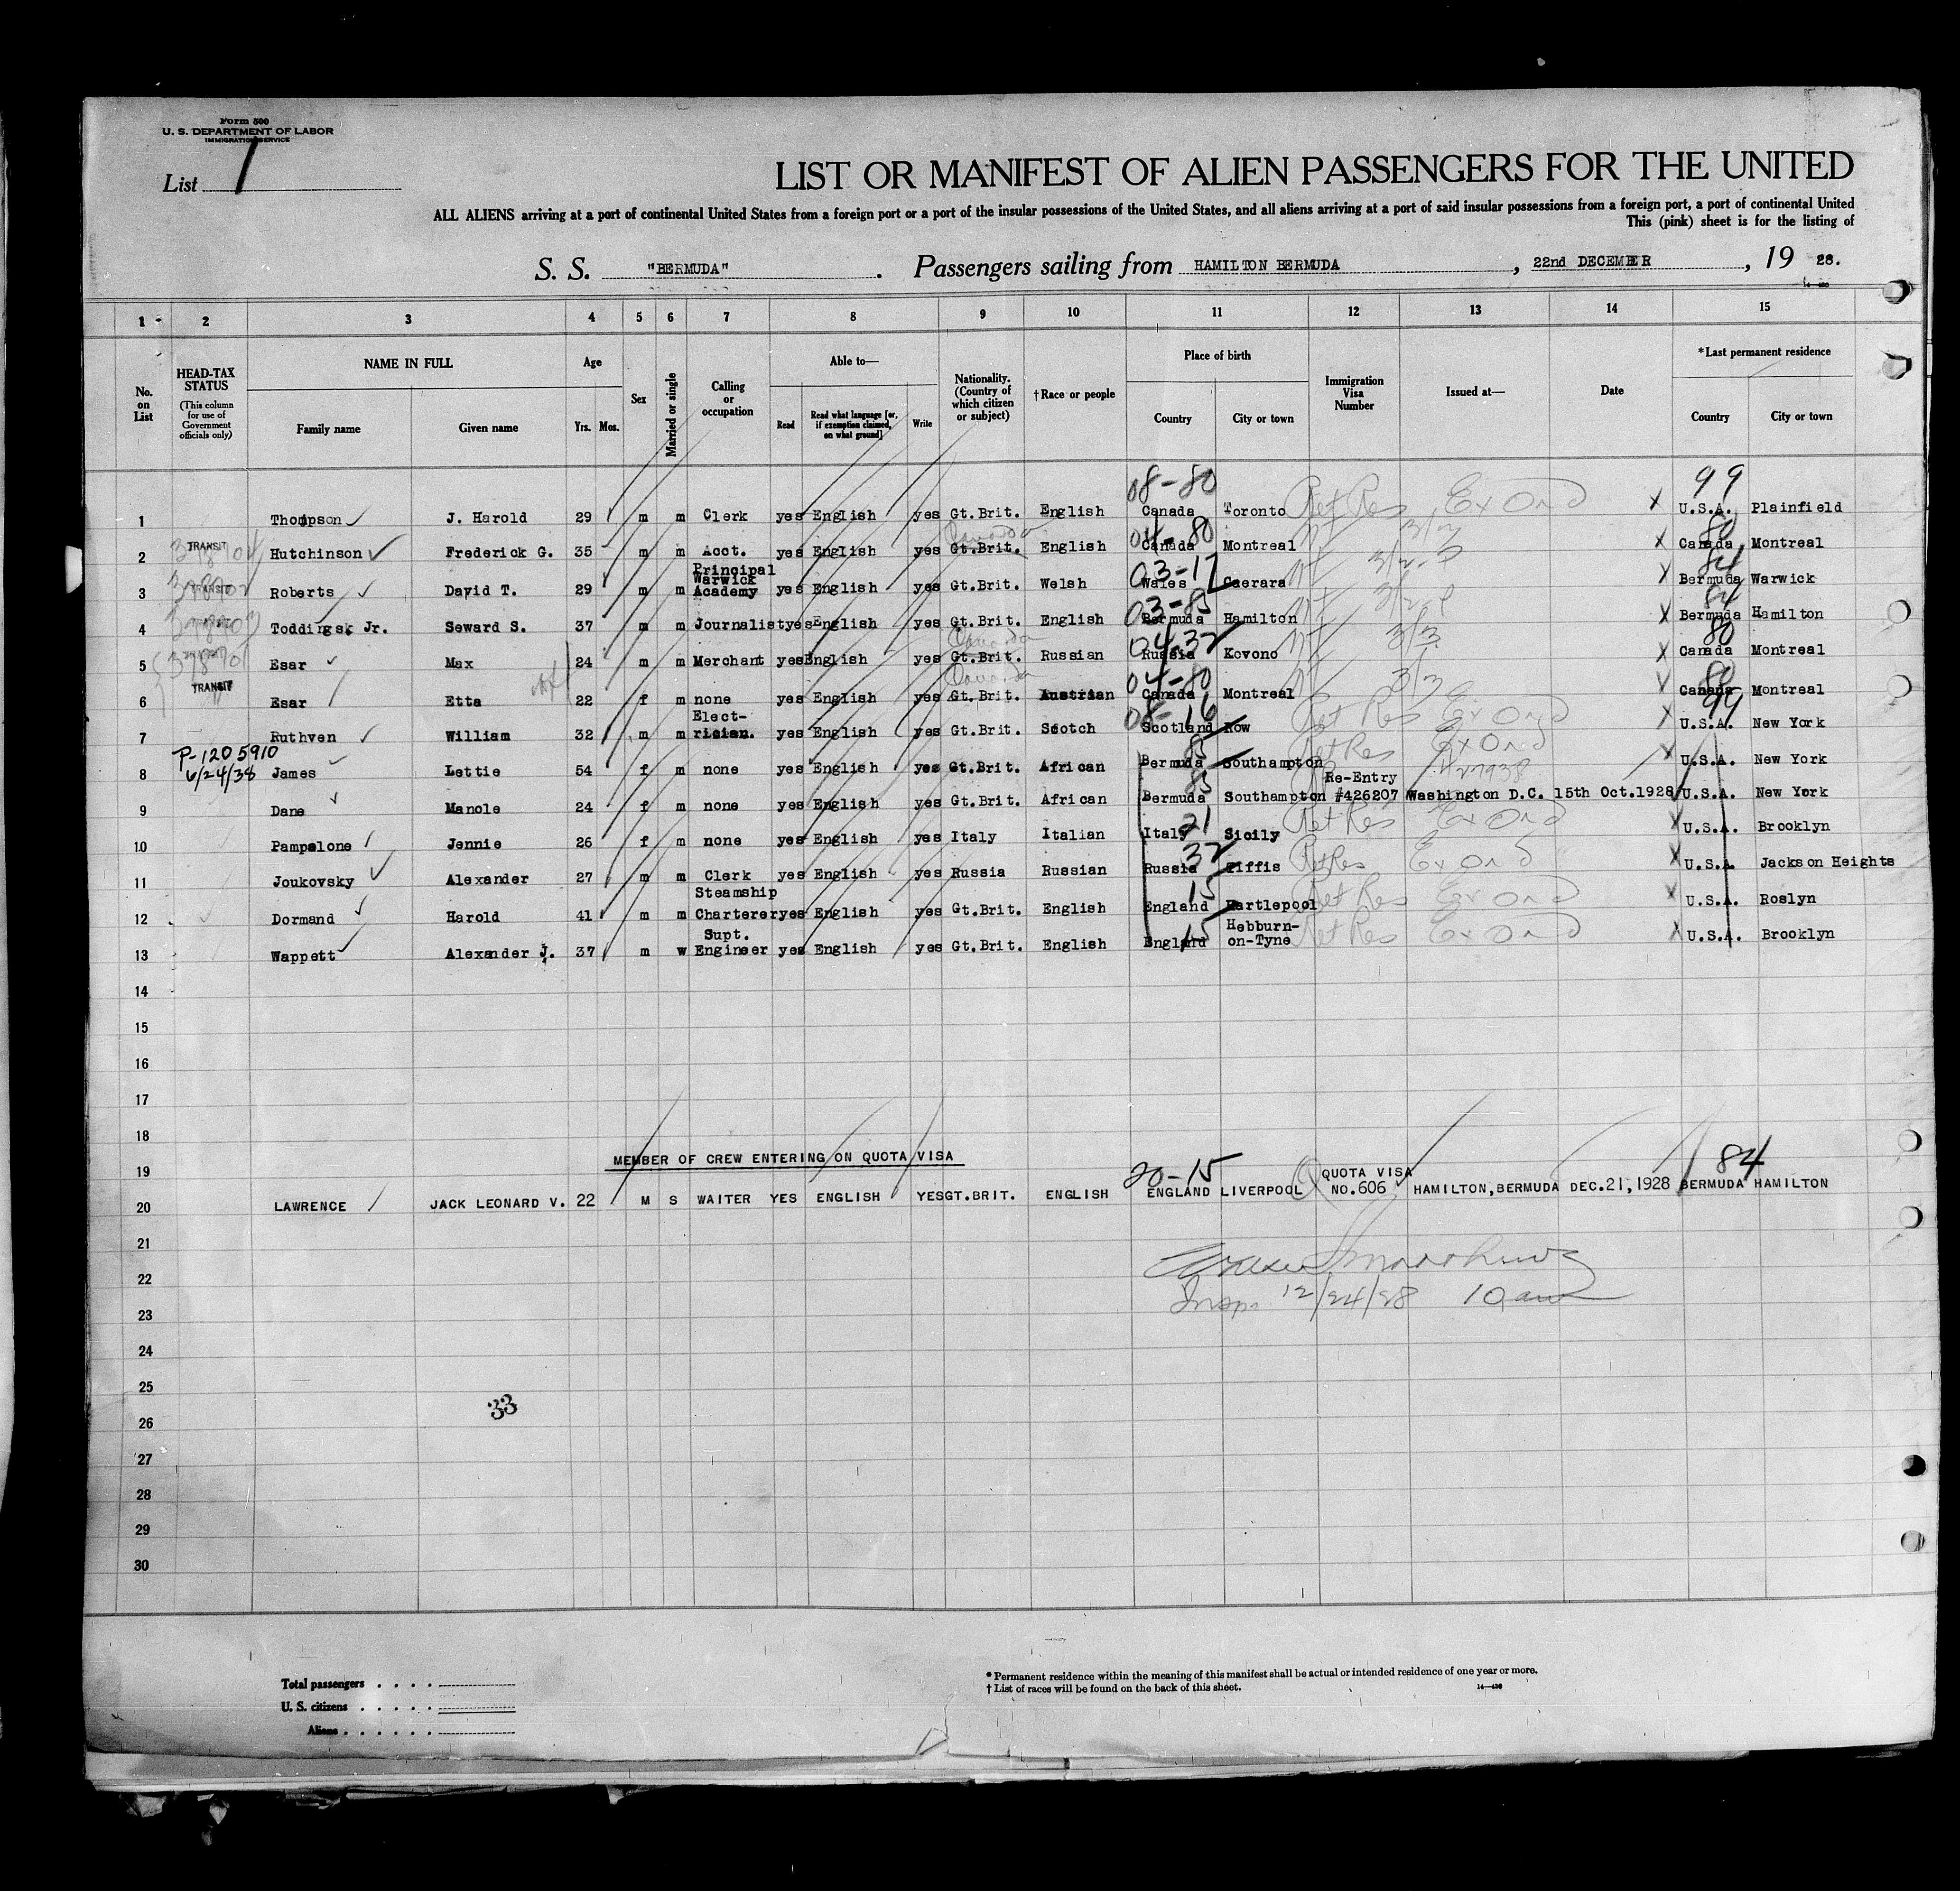 Form 500
U. S. DEPARTMENT OF LABOR
IMMIGRATION SERVICE
List 1
LIST OR MANIFEST OF ALIEN PASSENGERS FOR THE UNITED
ALL ALIENS arriving at a port of continental United States from a foreign port or a port of the insular possessions of the United States, and all aliens arriving at a port of said insular possessions from a foreign port, a port of continental United
This (pink) sheet is for the listing of
S. S. "BERMUDA". Passengers sailing from HAMILTON BERMUDA, 22nd DECEMBER, 19 28.
1 2 3 4 5 6 7 8 9 10 11 12 13 14 15
No. on List
HEAD-TAX STATUS
(This column for use of Government officials only)
NAME IN FULL
Family name Given name
Age
Yrs. Mos.
Sex
Married or single
Calling or occupation
Able to—
Read Read what language [or, if exemption claimed, on what ground] Write
Nationality. (Country of which citizen or subject)
†Race or people
Place of birth
Country City or town
Immigration Visa Number
Issued at—
Date
*Last permanent residence
Country City or town
08-80 99
1 Thompson J. Harold 29 m m Clerk yes English yes Gt.Brit. English Canada Toronto Ret Res Ex Ond X U.S.A. Plainfield
Canada 04-80 80
2 TRANSIT Hutchinson Frederick G. 35 m m Acct. yes English yes Gt.Brit. English Canada Montreal X Canada Montreal
03-17 84
3 TRANSIT Roberts David T. 29 m m Principal Warwick Academy yes English yes Gt.Brit. Welsh Wales Caerara X Bermuda Warwick
03-85 84
4 Toddings, Jr. Seward S. 37 m m Journalist yes English yes Gt.Brit. English Bermuda Hamilton X Bermuda Hamilton
Canada 04-32 80
5 Esar Max 24 m m Merchant yes English yes Gt.Brit. Russian Russia Kovono 3/3 X Canada Montreal
Canada 04-80 80
6 TRANSIT Esar Etta 22 f m none yes English yes Gt.Brit. Austrian Canada Montreal 3/3 Canada Montreal
08-16 99
7 Ruthven William 32 m m Elect-rician. yes English yes Gt.Brit. Scotch Scotland Row Ret Res Ex Ond X U.S.A. New York
P-120 5910
6/24/38
85
8 James Lettie 54 f m none yes English yes Gt.Brit. African Bermuda Southampton Ret Res Ex Ond X U.S.A. New York
85
9 Dane Manole 24 f m none yes English yes Gt.Brit. African Bermuda Southampton Re-Entry #426207 Washington D.C. 15th Oct.1928 U.S.A. New York
21
10 Pampalone Jennie 26 f m none yes English yes Italy Italian Italy Sicily Ret Res Ex Ond X U.S.A. Brooklyn
32
11 Joukovsky Alexander 27 m m Clerk yes English yes Russia Russian Russia Tiflis Ret Res Ex Ond X U.S.A. Jackson Heights
15
12 Dormand Harold 41 m m Steamship Charterer yes English yes Gt.Brit. English England Hartlepool Ret Res Ex Ond X U.S.A. Roslyn
15
13 Wappett Alexander J. 37 m w Supt. Engineer yes English yes Gt.Brit. English England Hebburn-on-Tyne Ret Res Ex Ond X U.S.A. Brooklyn
14
15
16
17
18
19 MEMBER OF CREW ENTERING ON QUOTA VISA
20-15 84
20 LAWRENCE JACK LEONARD V. 22 M S WAITER YES ENGLISH YES GT.BRIT. ENGLISH ENGLAND LIVERPOOL QUOTA VISA NO.606 HAMILTON, BERMUDA DEC.21,1928 BERMUDA HAMILTON
21
22
Insp. 12/24/28 10 am
23
24
25
33
26
27
28
29
30
Total passengers
U. S. citizens
Aliens
* Permanent residence within the meaning of this manifest shall be actual or intended residence of one year or more.
† List of races will be found on the back of this sheet.